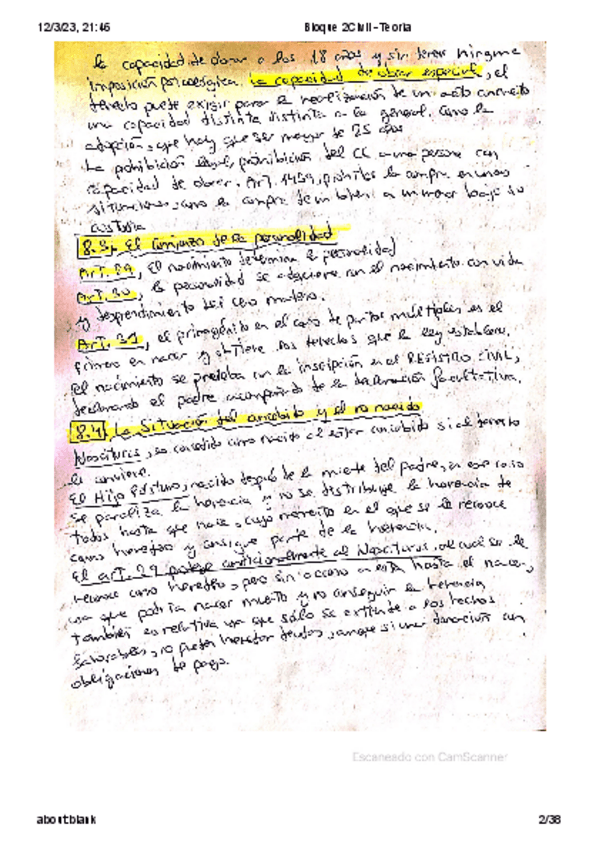 12/3/23, 21:46 Bloque 2Civil - Teoria
la capacidad de obrar a los 18 años y sin tener ninguna
imposición psicológica. La capacidad de obrar especial, el
derecho puede exigir para la realización de un acto concreto
una capacidad distinta distinta a la general. Como la
adopción, que hay que ser mayor de 25 años
La prohibición legal, prohibición del CC a una persona con
capacidad de obrar. Art. 1459, prohibe la compra en unas
situaciones, como la compra de un bien a un menor bajo su
custodia
8.3. El comienzo de la personalidad
Art. 29, El nacimiento determina la personalidad
Art. 30, la personalidad se adquiere con el nacimiento con vida
y desprendimiento del seno materno.
Art. 31, el primogénito en el caso de partos múltiples es el
primero en nacer y obtiene los derechos que la ley establece.
El nacimiento se prueba con la inscripción en el REGISTRO CIVIL,
declarando el padre acompañado de la declaración facultativa.
8.4. La situación del concebido y el no nacido
Nasciturus, es concebido como nacido el estar concebido si el derecho
le conviene.
El Hijo Póstumo, nacido después de la muerte del padre, en ese caso
se paraliza la herencia y no se distribuye la herencia de
todos hasta que nace, cuyo momento en el que se le reconoce
como heredero y consigue parte de la herencia.
El art. 29 protege condicionalmente al Nasciturus, el cual se le
reconoce como heredero, pero sin acceso a esta hasta el nacer,
ya que podría nacer muerto y no conseguir la herencia
también es relativa ya que sólo se extiende a los hechos
favorables, no puede heredar deudas, aunque si una donación con
obligaciones de pago.
Escaneado con CamScanner
about:blank 2/38